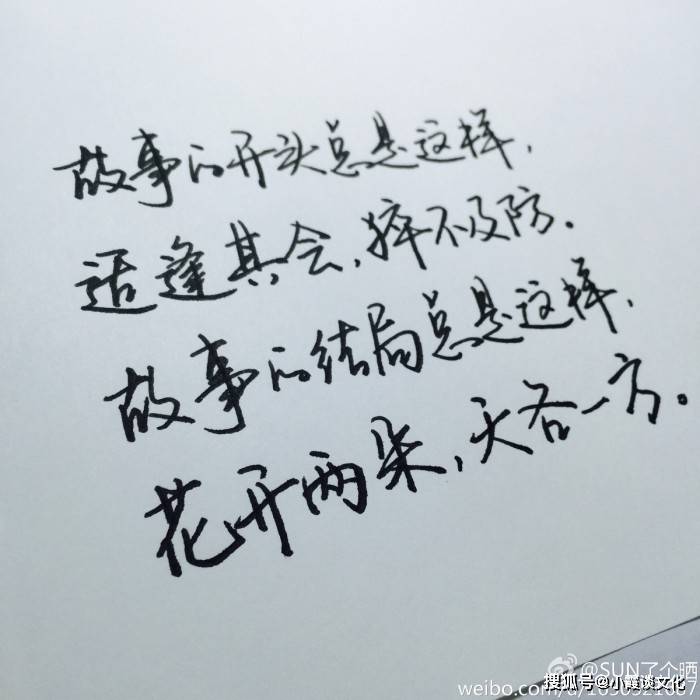 故事的开头总是这样，
适逢其会，猝不及防。
故事的结局总是这样，
花开两朵，天各一方。
@SUN了个晒
搜狐号@小霞谈文化